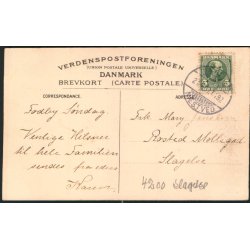 VERDENSPOSTFORENINGEN
(UNION POSTALE UNIVERSELLE)
DANMARK
BREVKORT (CARTE POSTALE)
CORRESPONDANCE.
Fodby Søndag
Venlige Hilsner
til hele Familien
sendes fra eders
Karen
Frk. Mary
Slagelse
4200 Slagelse